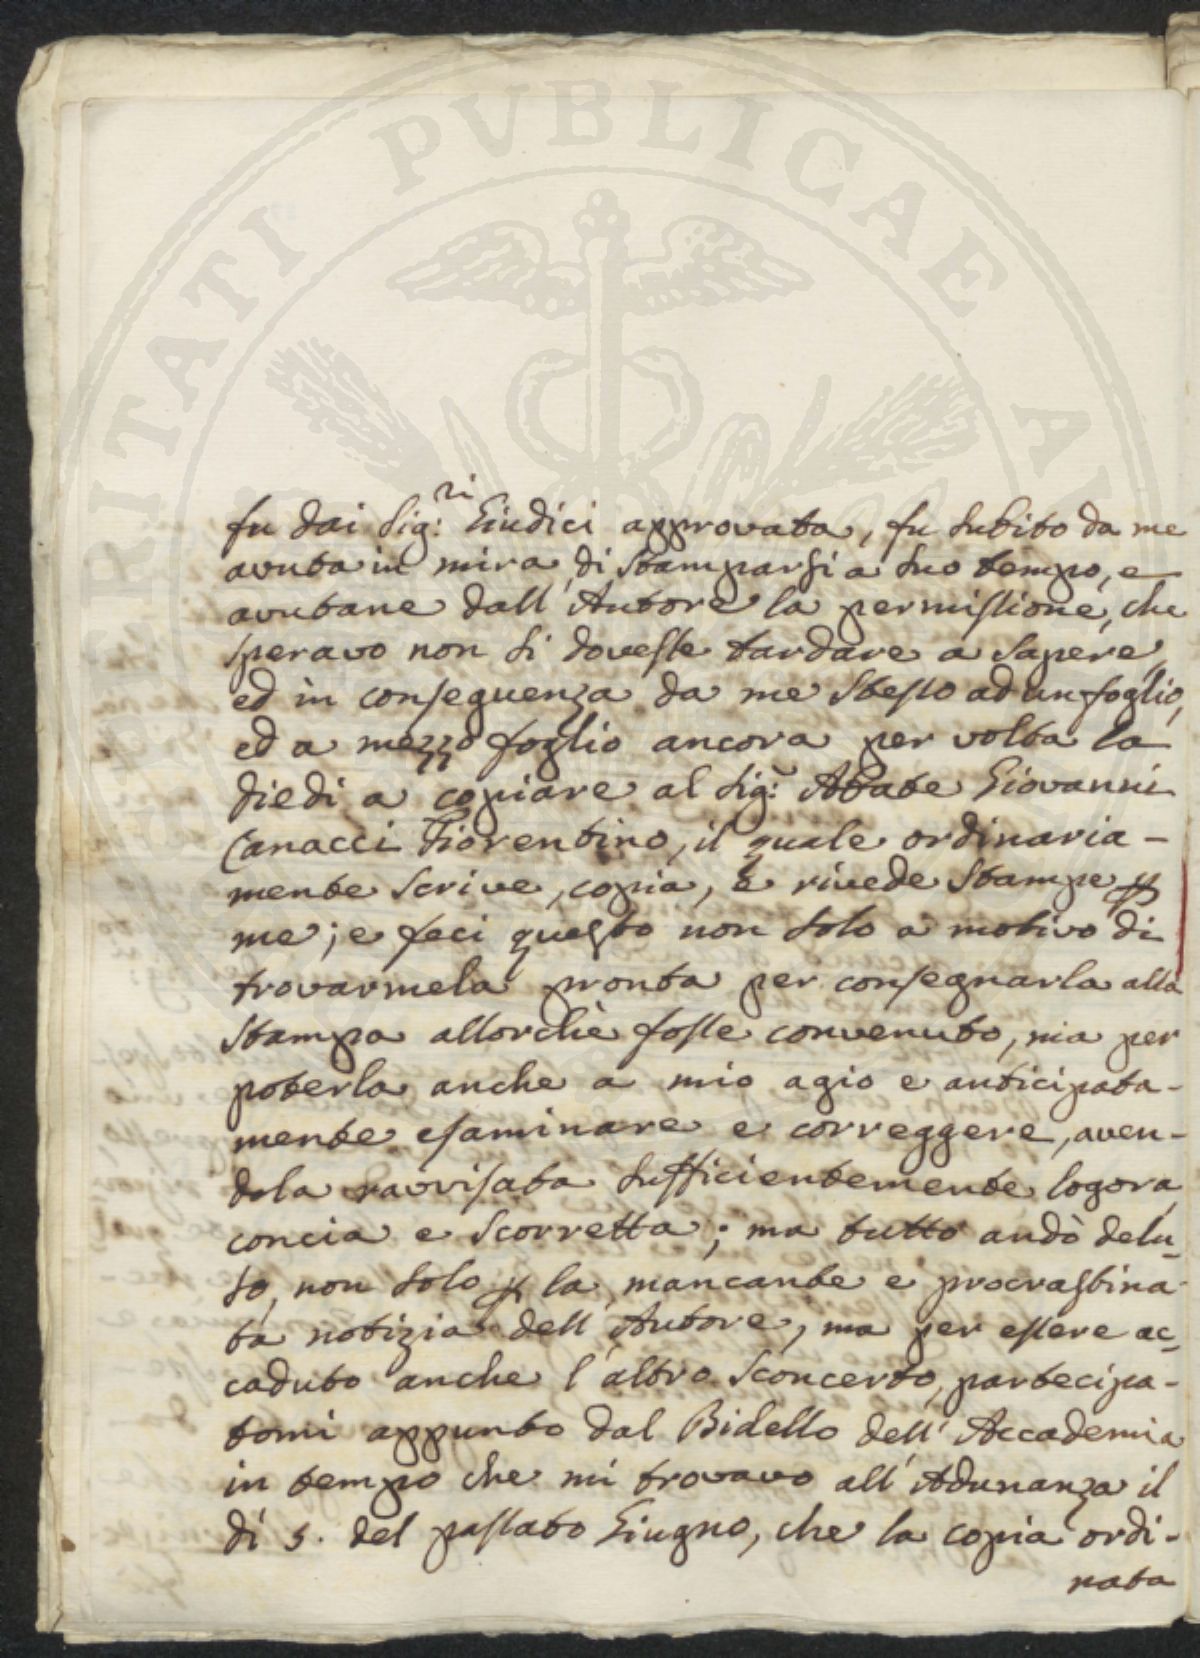 PROSPERITATI PVBLICAE AV
fu dai Sig:ri Giudici approvata, fu subito da me
avuta in mira di stamparsi a suo tempo, e
avutane dall'Autore la permissione, che
speravo non si dovesse tardare a sapere,
ed in conseguenza da me stesso ad un foglio,
ed a mezzo foglio ancora per volta la
diedi a copiare al Sig:r Abate Giovanni
Canacci Fiorentino, il quale ordinaria-
mente scrive, copia, e rivede stampe p
me; e feci questo non solo a motivo di
trovarmela pronta per consegnarla alla
stampa allorchè fosse convenuto, ma per
poterla anche a mio agio e anticipata-
mente esaminare e correggere, aven-
dola ravvisata sufficientemente logora,
concia e scorretta; ma tutto andò delu-
so, non solo p la mancante e procrastina-
ta notizia dell'Autore, ma per essere ac-
caduto anche l'altro sconcerto, partecipa-
tomi appunto dal Bidello dell'Accademia
in tempo che mi trovavo all'Adunanza il
dí 5. del passato Giugno, che la copia ordi-
nata